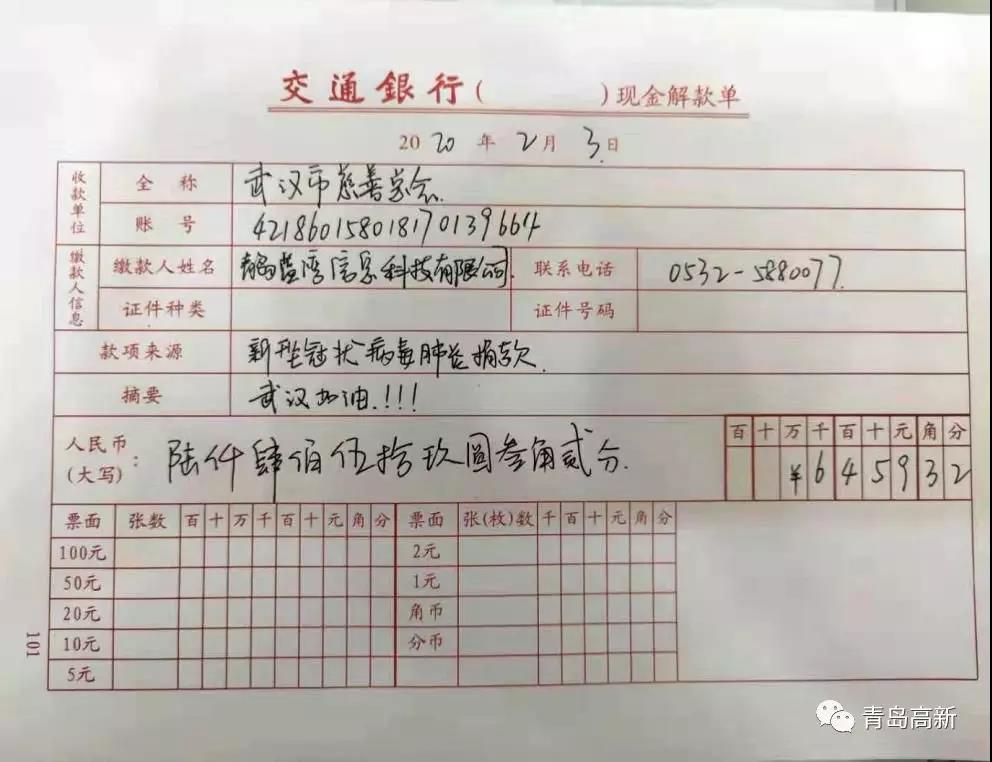 交通銀行( )现金解款单
2020年2月3日
收款单位 全称 武汉市慈善总会
账号 421860158018170139664
缴款人信息 缴款人姓名 青岛蓝湾信息科技有限公司. 联系电话 0532-5880077.
证件种类 证件号码
款项来源 新型冠状病毒肺炎捐款.
摘要 武汉加油.!!!
人民币(大写): 陆仟肆佰伍拾玖圆叁角贰分. 百十万千百十元角分
¥645932
票面 张数 百十万千百十元角分 票面 张(枚)数 千百十元角分
100元 2元
50元 1元
20元 角币
10元 分币
5元
101
青岛高新